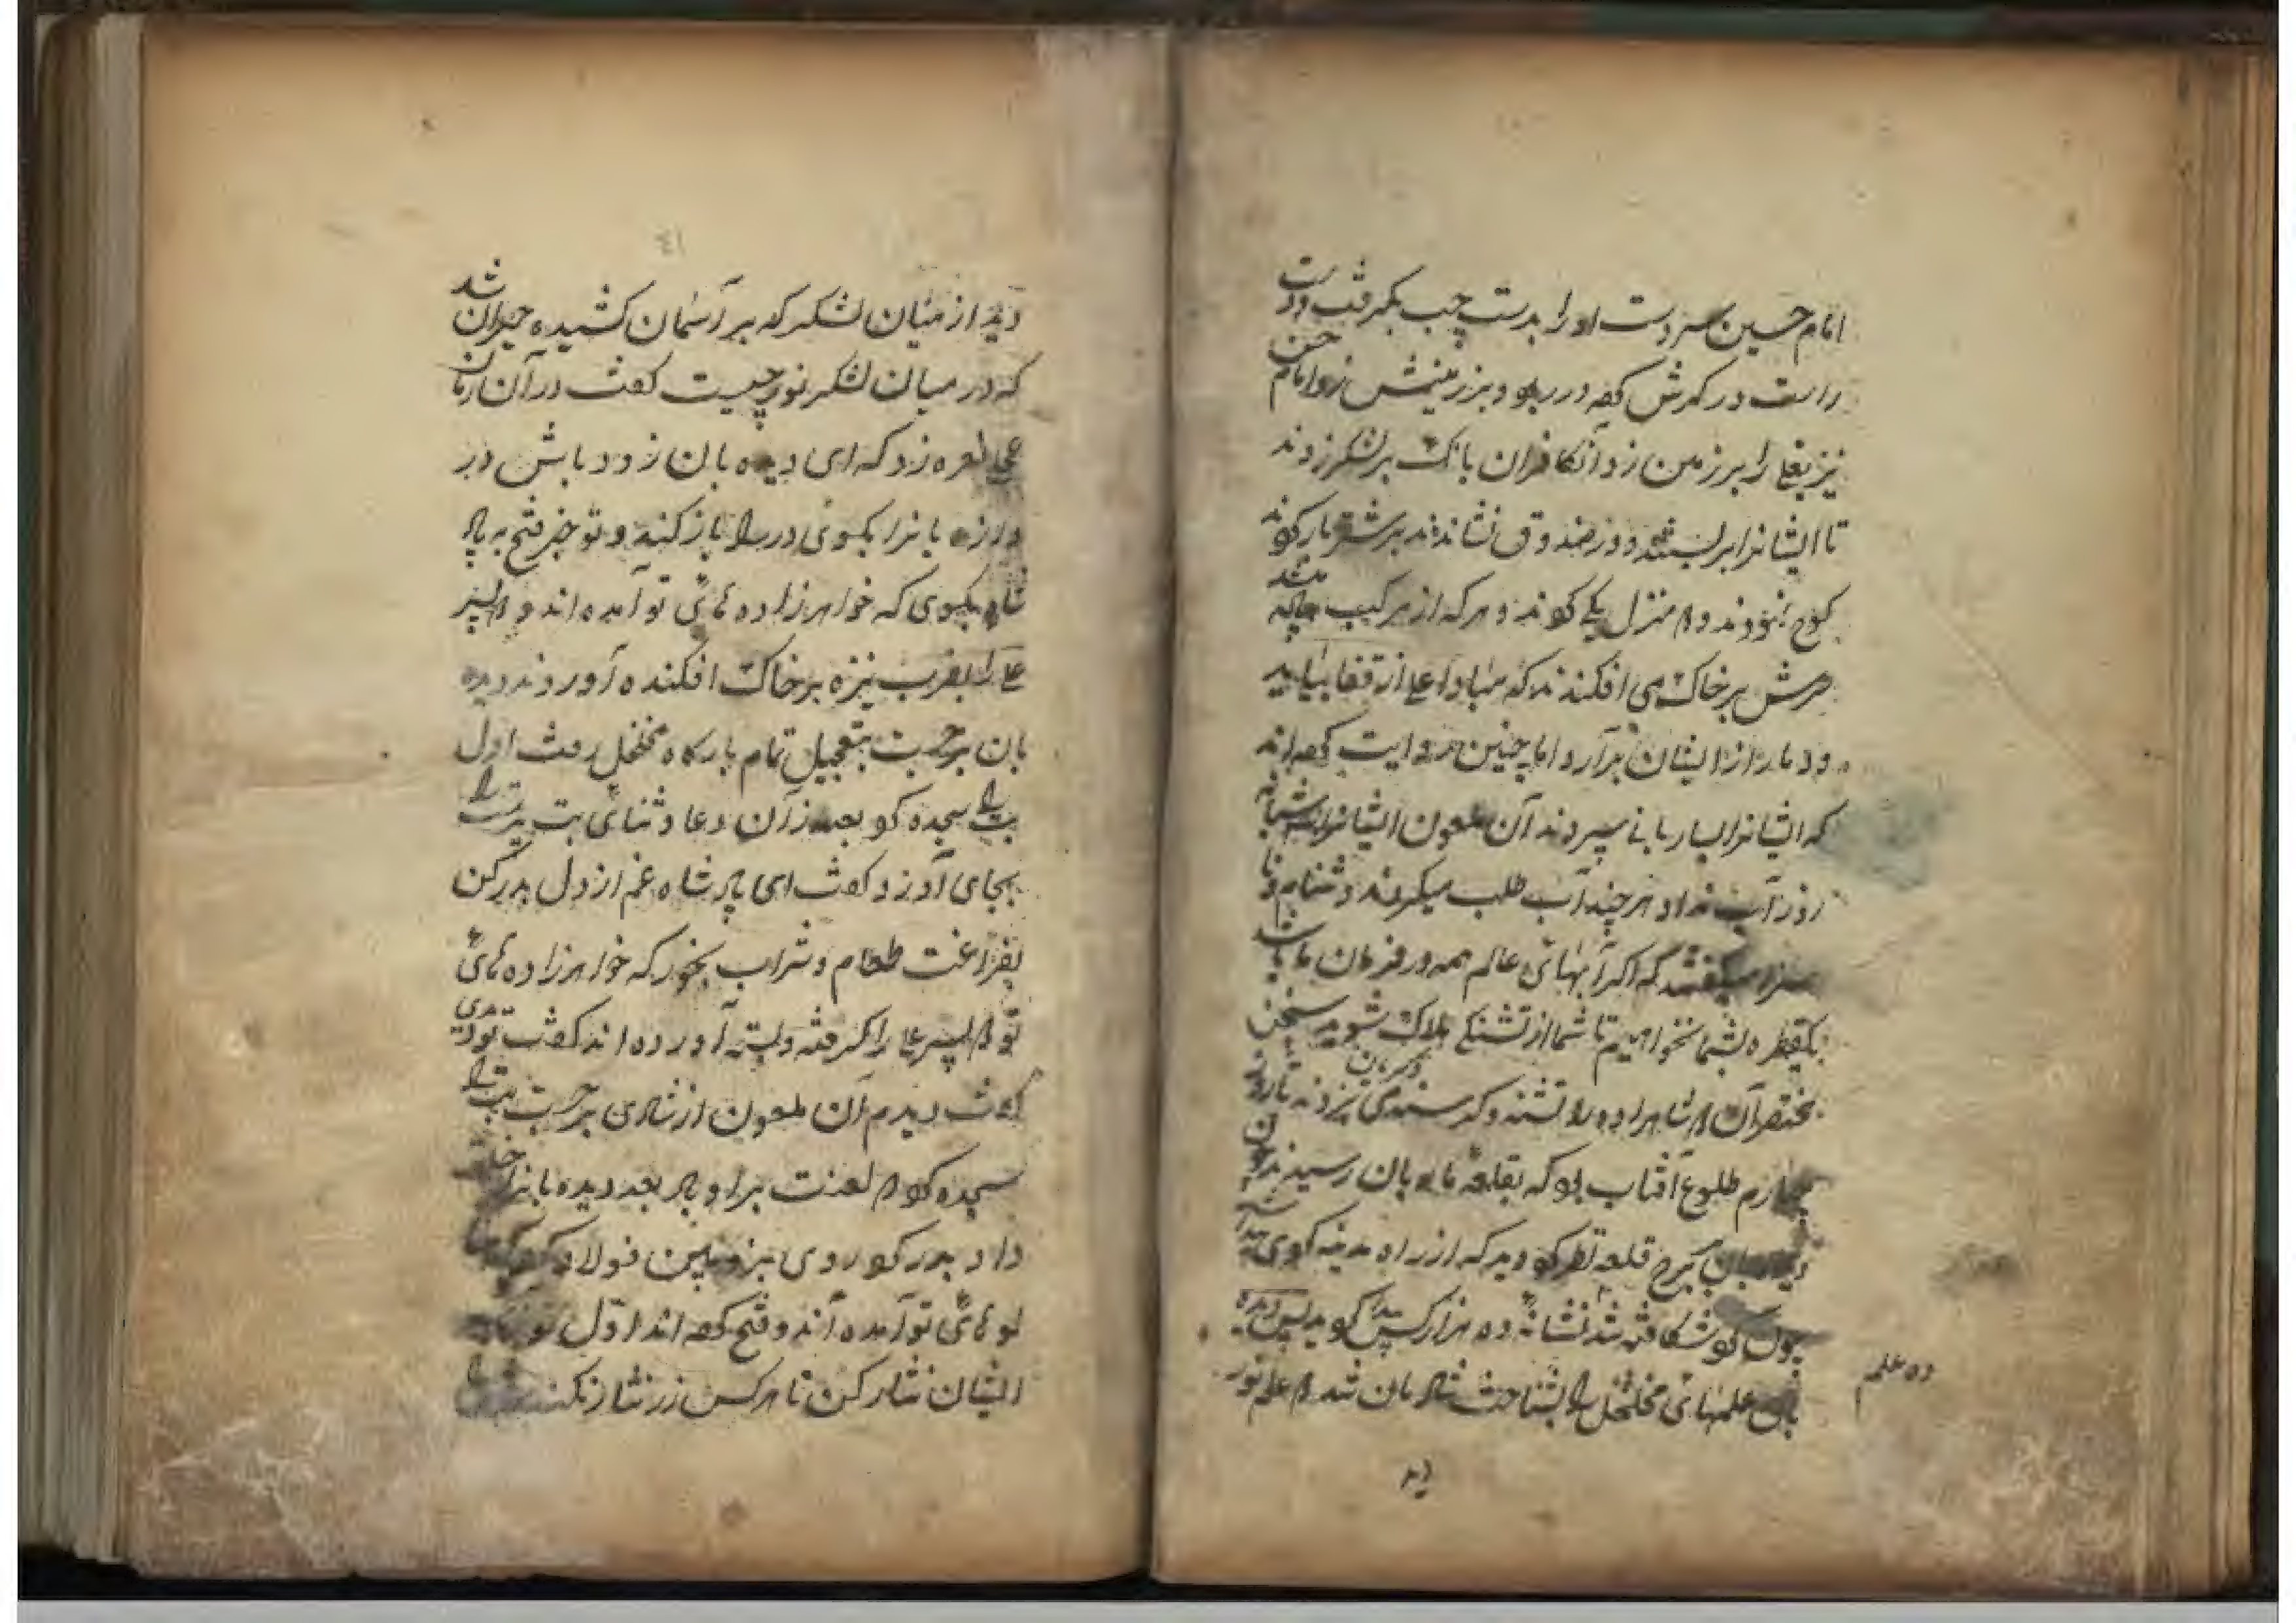 امام حسین سر دست او را بدست چپ بگرفت و دست
راست در کمرش کرده در ربود و بر زمینش زد و امام حسن
نیز یغلی را بر زمین زد آنکافران بانک بر لشکر زدند
تا ایشانرا بر بستند و در صندوق نشاندند بر شتر بار کردند
کوچ نمودند دو منزل یکی کردند و هر که از مرکب
سرش بر خاک می افکندند که مبادا علی از قفا بیاید
و دمار از ایشان برآرد اما چنین روایت کرده اند
که ایشانرا بساربانی سپردند آن ملعون ایشانرا
روز آب نداد هر چند آب طلب میکردند دشنام و نا
سزا میگفتند که اکر آبهائی عالم همه در فرمان ما باشد
یکقطره بشما نخواهیم تا شما از تشنکی هلاک شوید سخن
مختصر آن دو شاهزاده را تشنه و کرسنه می بردند تا روز
چهارم طلوع آفتاب بود که بقلعه ماه بان رسیدند
دیده بان ببرج قلعه نظر کرد دید که از راه مدینه کردی پیدا شد
چون کرد شکافته شد نشانه ده هزار کس پیدا کردید پس دیده
بان علمهائی مخلخل را بشناخت شادمان شد دو علم نور
ده علم
دید
٤١
دید از میان لشکر که بر آسمان کشیده حیران شد
که در میان لشکر نور چیست کفت در آن زمان
نعره زد که ای دیده بان زود باش در
دروازه بانرا بکوی در را باز کنید و تو خبر فتح به پاد
شاه بکوی که خواهرزاده هائی تو آمده اند دو پسر
علی را بضرب نیزه بر خاک افکنده آوردند دیده
بان برجست بتعجیل تمام بارکاه مخلخل رفت اول
بت را سجده کرد بعد از آن دعا و ثنائی بت پرست را
بجای آورد و کفت ای پادشاه غم از دل بدر کن
بفراغت طعام و شراب بخور که خواهرزاده هائی
تو دو پسر علی را کرفته و بسته آورده اند کفت تو دیدی
کفت دیدم آن ملعون از شادی برجست بت را
سجده کرد دو لعنت بر او باد بعد دیده بانرا خلعت
داد بدر کرد روی بزوبین فولاد کرد
تو هائی تو آمده اند و فتح کرده اند اول تو
ایشان نثار کن تا هر کس زر نثار نکند